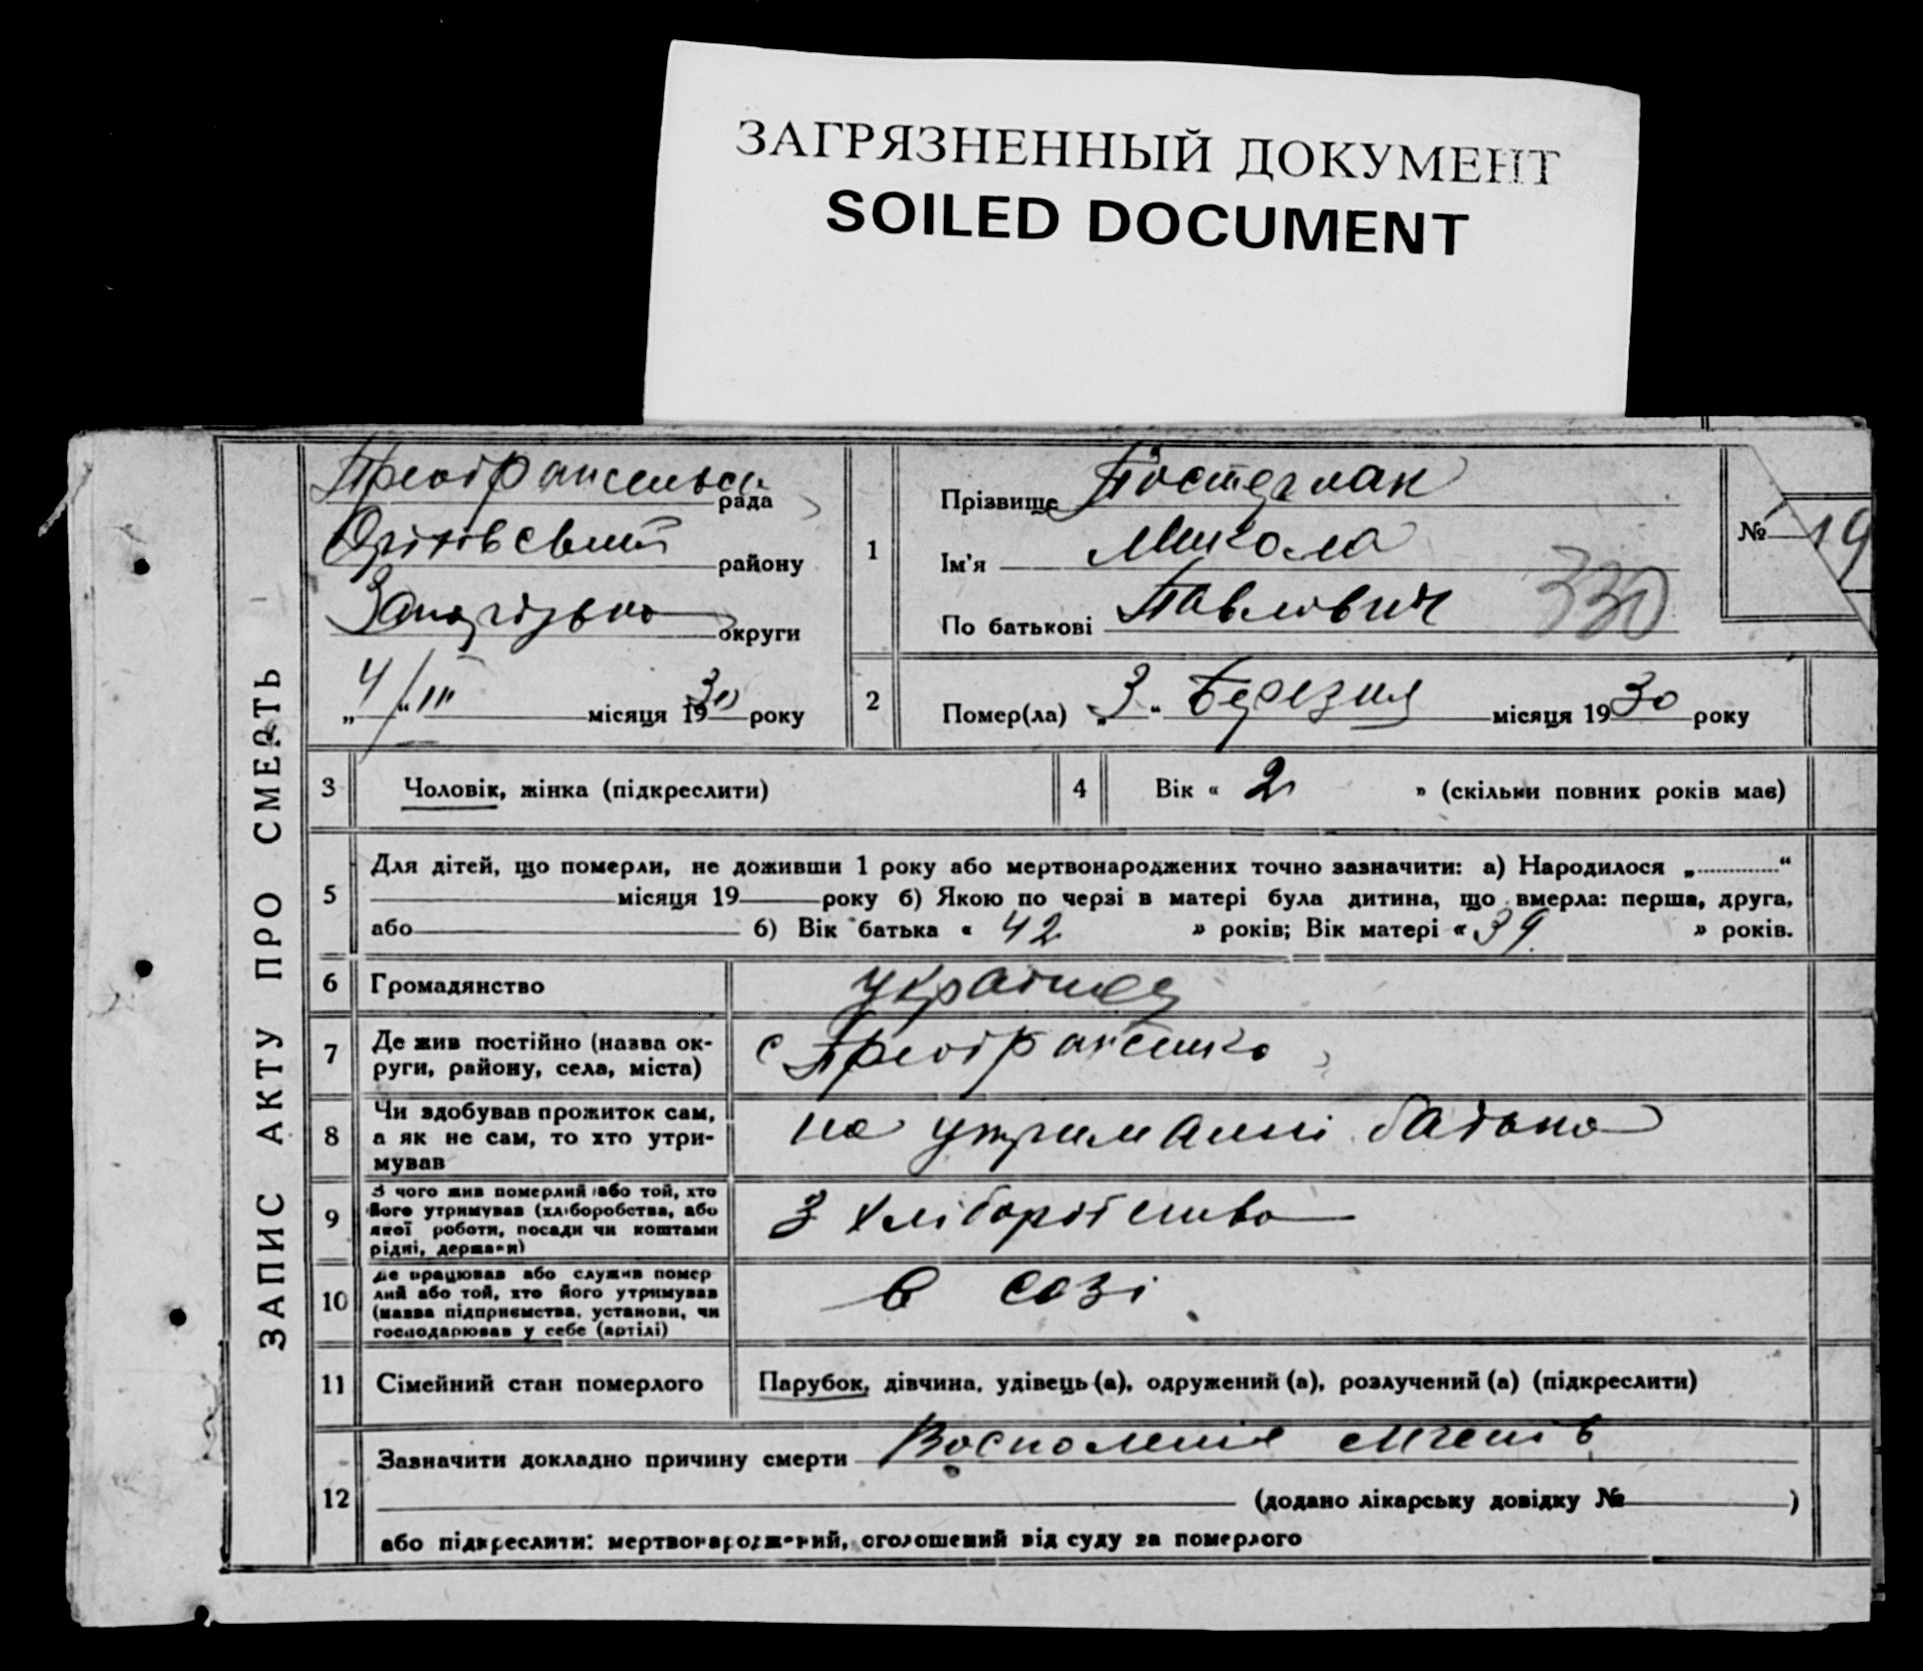 ЗАГРЯЗНЕННЫЙ ДОКУМЕНТ
SOILED DOCUMENT
ЗАПИС АКТУ ПРО СМЕРТЬ
рада
району
округи
„ 4 “ / III місяця 1930 року
1
Прізвище
Ім'я Микола
По батькові Павлович
330
№ 19
2
Помер(ла) „ 3 “ Березня місяця 1930 року
3 Чоловік, жінка (підкреслити)
4 Вік « 2 » (скільки повних років має)
5
Для дітей, що померли, не доживши 1 року або мертвонароджених точно зазначити: а) Народилося „ “
місяця 19 року б) Якою по черзі в матері була дитина, що вмерла: перша, друга,
або б) Вік батька « 42 » років; Вік матері « 39 » років.
6 Громадянство українец
7
Де жив постійно (назва ок-
руги, району, села, міста)
с
8
Чи здобував прожиток сам,
а як не сам, то хто утри-
мував
на утриманні батька
9
З чого жив померлий або той, хто
його утримував (хліборобства, або
якої роботи, посади чи коштами
рідні, держави)
З хліборобства
10
Де працював або служив помер
лий або той, хто його утримував
(назва підприємства, установи, чи
господарював у себе (артілі)
в созі
11 Сімейний стан померлого Парубок, дівчина, удівець (а), одружений (а), розлучений (а) (підкреслити)
12
Зазначити докладно причину смерти
(додано лікарську довідку № )
або підкреслити: мертвонароджений, оголошений від суду за померлого